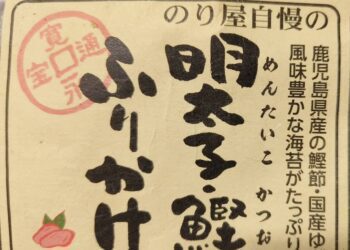 のり屋自慢の
鹿児島県産の鰹節・国産ゆ
風味豊かな海苔がたっぷり
めんたいこ かつお
明太子・鰹
ふりかけ
寛永通宝